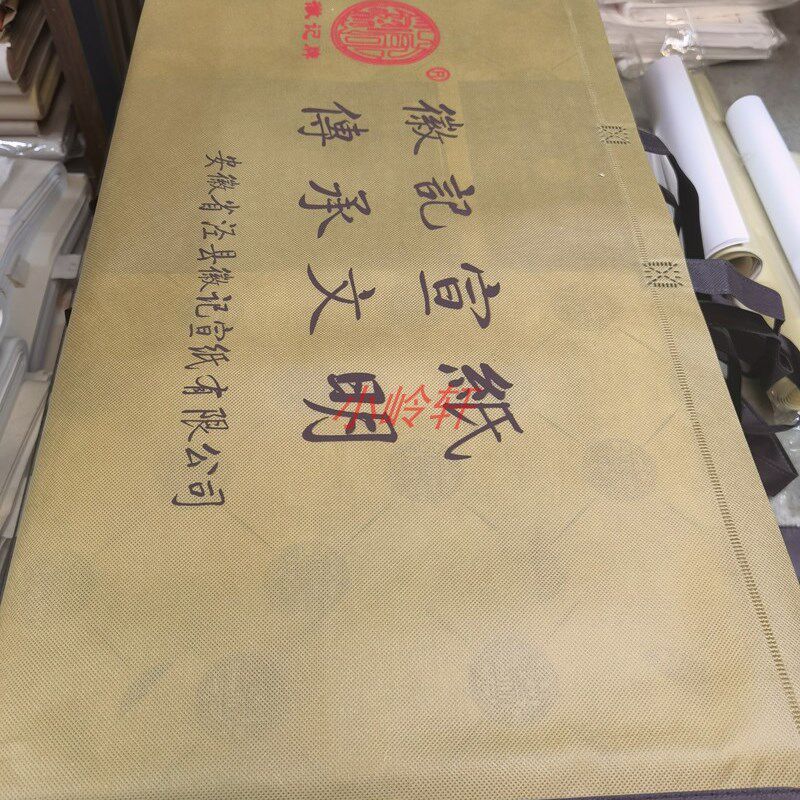 徽记牌
®
徽記宣紙
傳承文明
安徽省泾县徽记宣纸有限公司